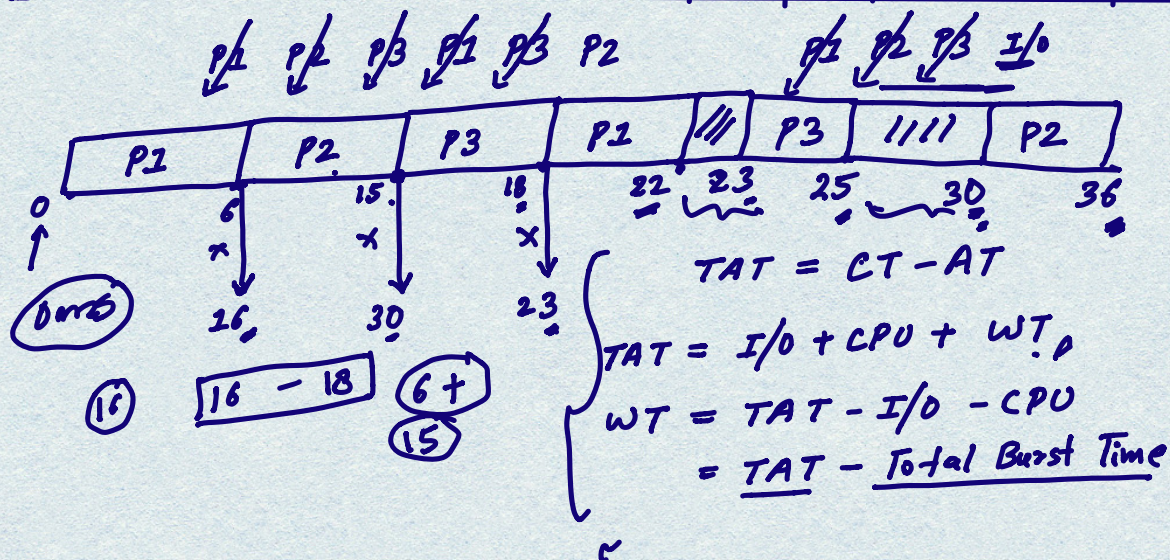 P1 P2 P3 P1 P3 P2 P1 P2 P3 I/O
P1 P2 P3 P1 //// P3 //// P2
0 6 15 18 22 23 25 30 36
x x x
0ms
16 30 23
TAT = CT - AT
TAT = I/O + CPU + WT
16 16 - 18 6 +
15
WT = TAT - I/O - CPU
= TAT - Total Burst Time